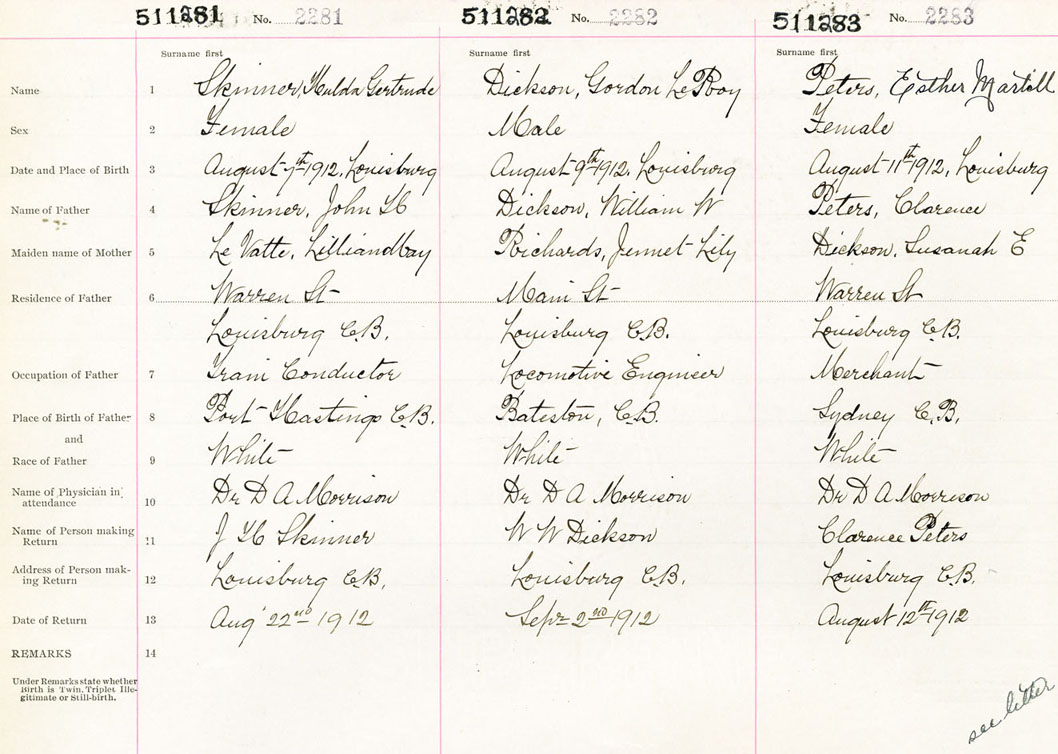 511281 No. 2281 511282 No. 2282 511283 No. 2283
Surname first Surname first Surname first
Name 1 Skinner, Hulda Gertrude Dickson, Gordon LeRoy Peters, Esther Martell
Sex 2 Female Male Female
Date and Place of Birth 3 August 7th 1912, Louisburg August 9th 1912, Louisburg August 11th 1912, Louisburg
Name of Father 4 Skinner, John H Dickson, William W Peters, Clarence
Maiden name of Mother 5 Le Vatte, Richards, Jennet Lily Dickson, Susanah E
Residence of Father 6 Warren St Main St Warren St
Louisburg C.B. Louisburg C.B. Louisburg C.B.
Occupation of Father 7 Train Conductor Locomotive Engineer Merchant
Place of Birth of Father 8 Port Hastings C.B. Bateston, C.B. Sydney C.B.
and
Race of Father 9 White White White
Name of Physician in
attendance 10 Dr D A Morrison Dr D A Morrison Dr D A Morrison
Name of Person making
Return 11 J H Skinner W W Dickson Clarence Peters
Address of Person mak-
ing Return 12 Louisburg C.B. Louisburg C.B. Louisburg C.B.
Date of Return 13 Aug 22nd 1912 Sept 2nd 1912 August 12th 1912
REMARKS 14
Under Remarks state whether
Birth is Twin, Triplet Ille-
gitimate or Still-birth.
see letter